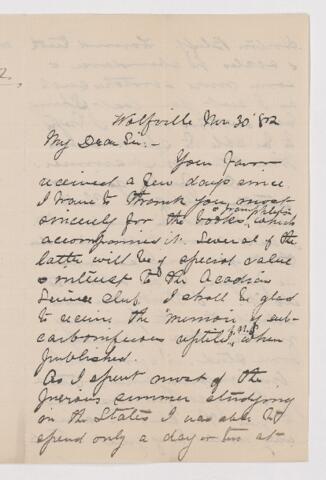 Wolfville Nov 30 '82
My Dear Sir:-
Your favor
received a few days since.
I have to thank you most
sincerely for the books & pamphlets which
accompanied it. Several of the
latter will be of special value
& interest to the Acadian
Science club. I shall be glad
to receive the "memoir of sub-
carboniferous reptile when
published.
As I spent most of the
previous summer studying
in the States I was able to
spend only a day or two at